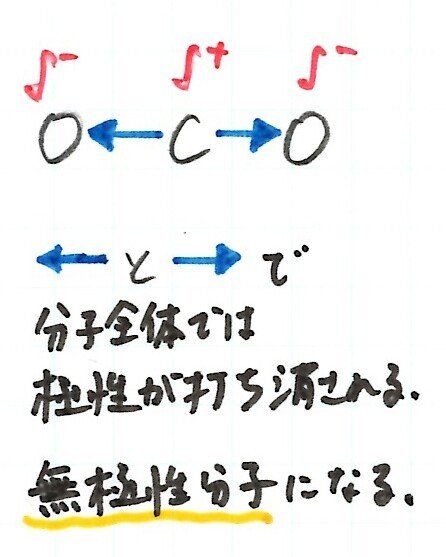 δ- δ+ δ-
O ← C → O
← と → で
分子全体では
極性が打ち消される.
無極性分子になる.